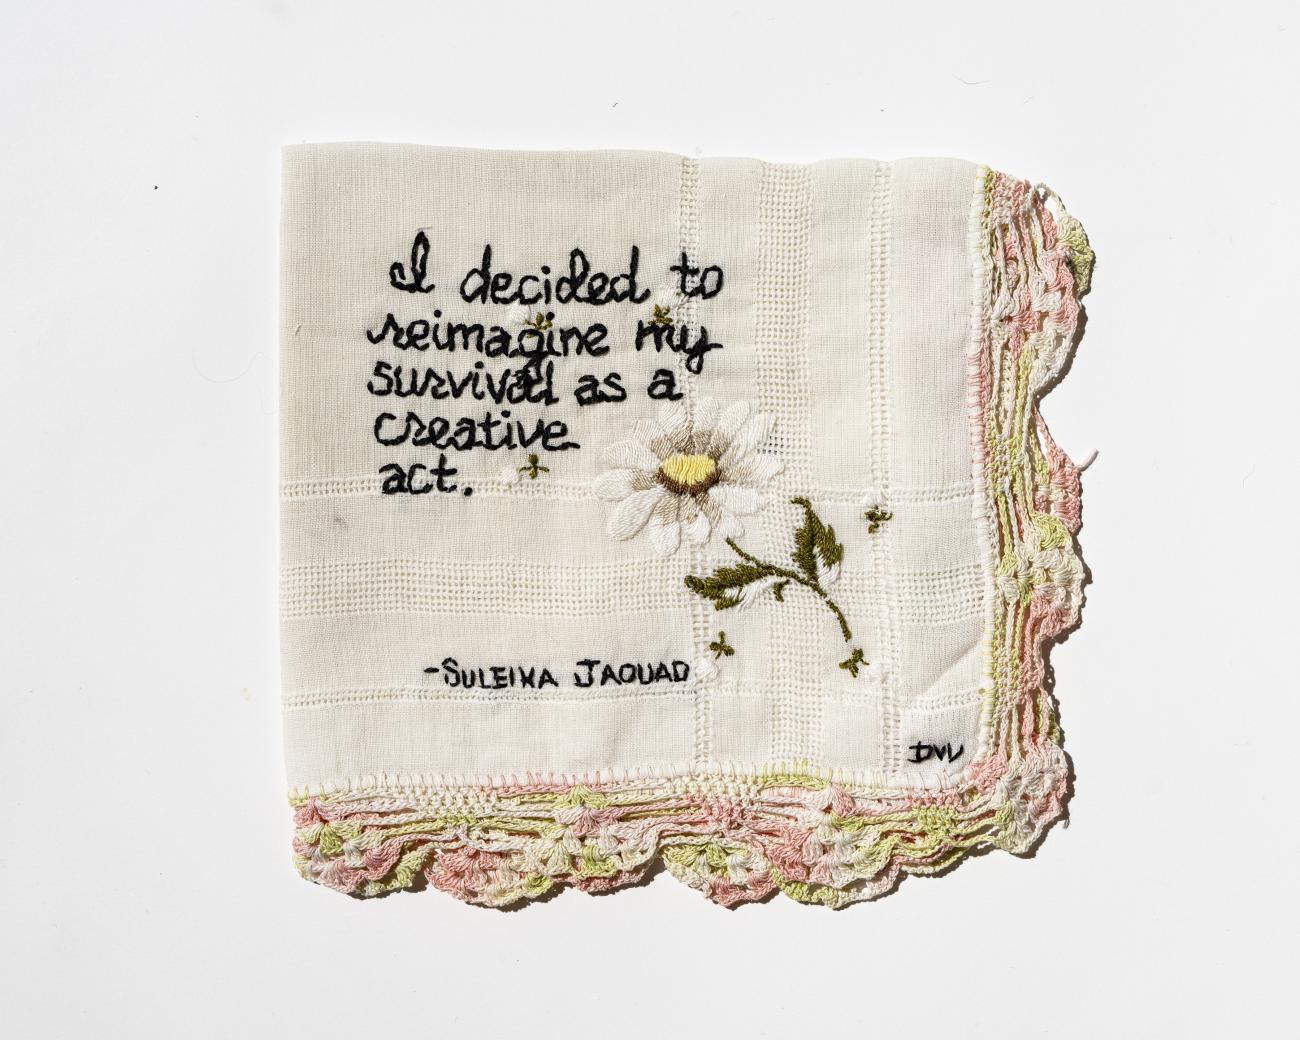 I decided to
reimagine my
survival as a
creative
act.
-SULEIKA JAOUAD
DVV